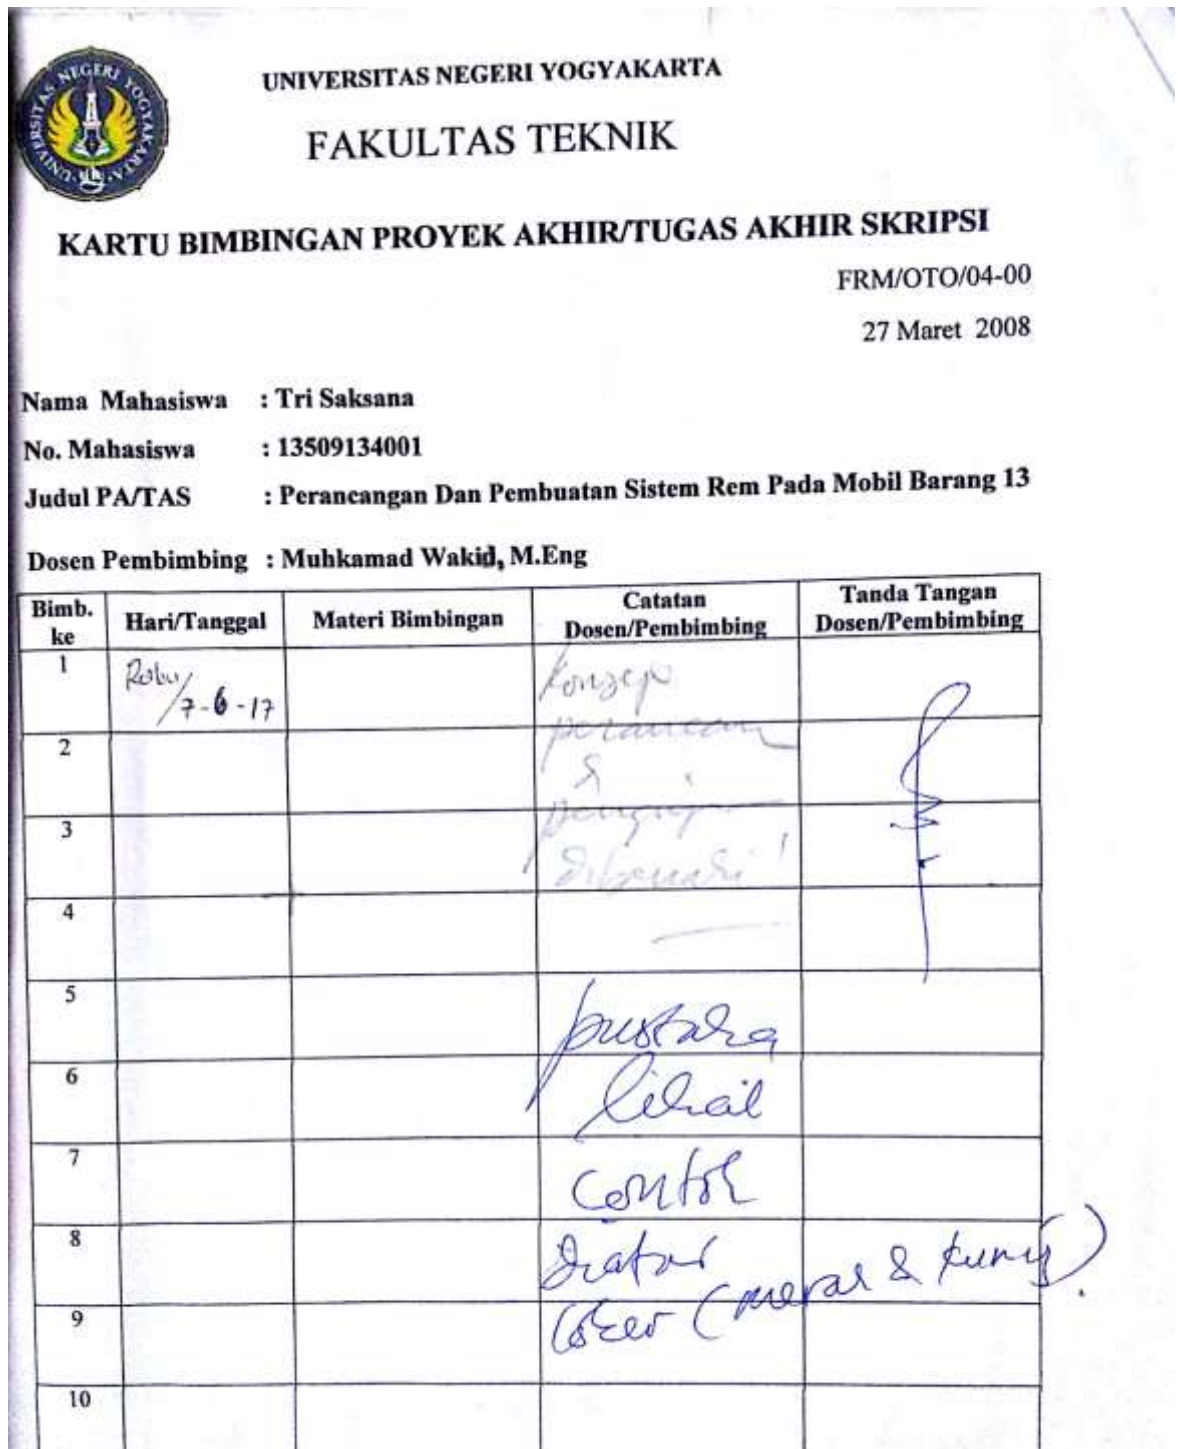 UNIVERSITAS NEGERI YOGYAKARTA
UNIVERSITAS NEGERI YOGYAKARTA
FAKULTAS TEKNIK
KARTU BIMBINGAN PROYEK AKHIR/TUGAS AKHIR SKRIPSI
FRM/OTO/04-00
27 Maret 2008
Nama Mahasiswa : Tri Saksana
No. Mahasiswa : 13509134001
Judul PA/TAS : Perancangan Dan Pembuatan Sistem Rem Pada Mobil Barang 13
Dosen Pembimbing : Muhkamad Wakid, M.Eng
Bimb. ke Hari/Tanggal Materi Bimbingan Catatan Dosen/Pembimbing Tanda Tangan Dosen/Pembimbing
1 Rabu/7-6-17 Konsep
2 perancan
&
3
dibenahi!
4
5 pustaka
6 lihat
7 contoh
8 diatas
9 (merah & kuning).
10